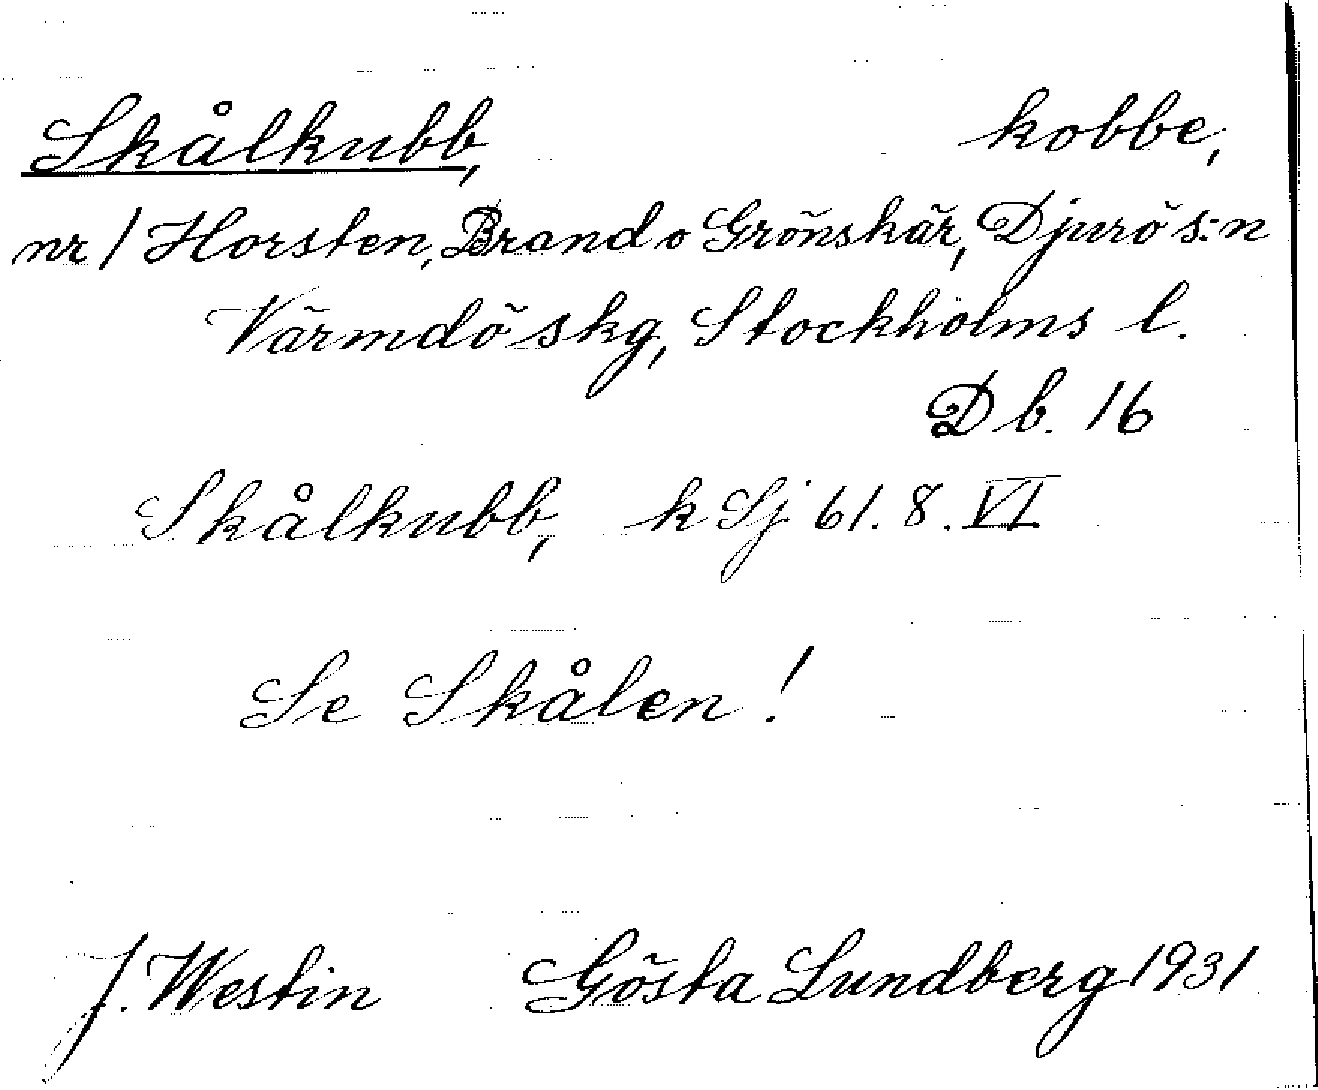 Skålkubb, kobbe,
nr / Horsten, Brand o Grönskär, Djurö s:n
Värmdö skg, Stockholms l.
D b. 16
Skålkubb, k Sj 61. 8. VI
Se Skålen!
J. Westin Gösta Lundberg 1931